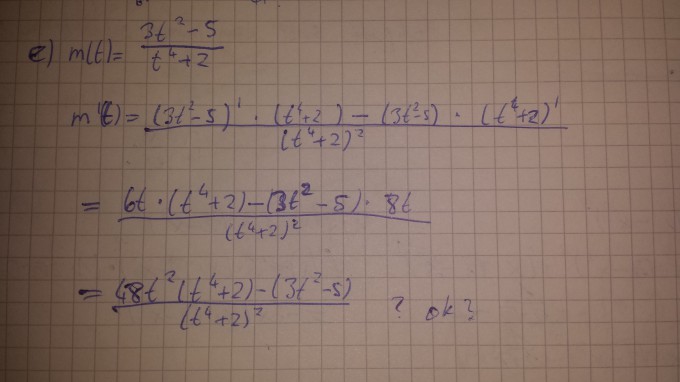 e) m(t) = (3t² - 5) / (t⁴ + 2)
m'(t) = ((3t² - 5)' · (t⁴ + 2) - (3t² - 5) · (t⁴ + 2)') / (t⁴ + 2)²
= (6t · (t⁴ + 2) - (3t² - 5) · 8t) / (t⁴ + 2)²
= (48t² (t⁴ + 2) - (3t² - 5)) / (t⁴ + 2)² ? ok?